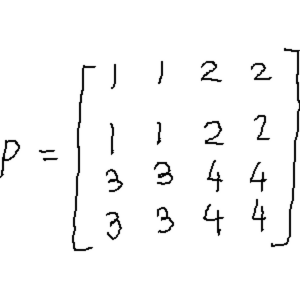 1 1 2 2
1 1 2 2
P =
3 3 4 4
3 3 4 4